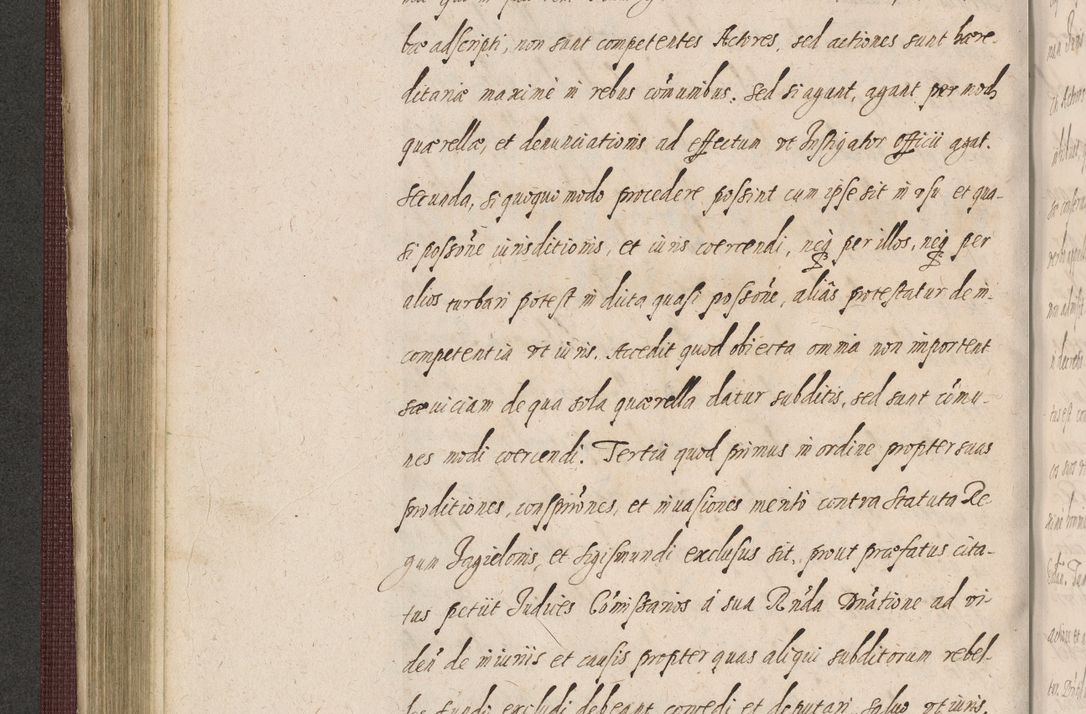 bæ adscripti, non sunt competentes Actores, sed actiones sunt hære-
ditariæ maximè in rebus cõmunibus. Sed si agant, agant per mod
quærellæ, et denunciationis ad effectum ut Instigator officii agat.
Secunda, si quoquo modo procedere possint cum ipse sit in usu et qua-
si possõne iurisditionis, et iuris coercendi, neq per illos, neq per
alios turbari potest in dicta quasi possõne, aliãs protestatur de in-
competentia ut iuris. Accedit quod obiecta omnia non important
sæviciam de qua sola quærella datur subditis, sed sunt cõmu-
nes modi coercendi. Tertia quod primus in ordine propter suas
proditiones, conspirõnes, et invasiones meritò contra Statuta Re-
gum Jagielonis, et Sigismundi exclusus sit, prout præfatus cita-
tus petiit Judices Cõmissarios á sua Rñda Dnãtione ad vi-
deñ de iniuriis et causis propter quas aliqui subditorum rebel-
les fundi excludi debeant concedi et deputari salvo ut iuris.